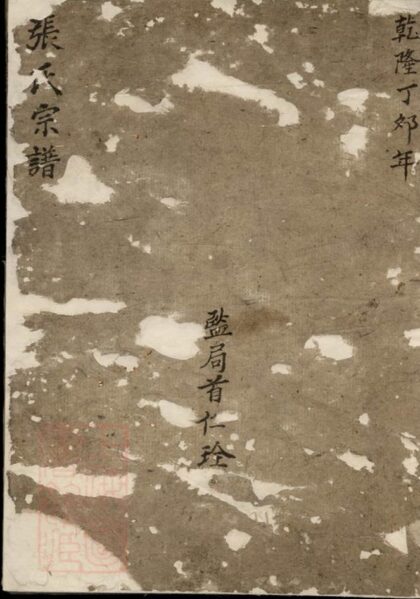 乾隆丁郊年
監局首仁
張氏宗譜